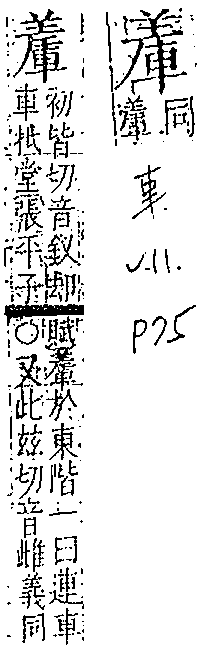 同
䡨
車
V.11.
P75
䡨
初皆切音釵却
車抵堂張平子
賦䡨於東階一曰連車
○又此茲切音雌義同